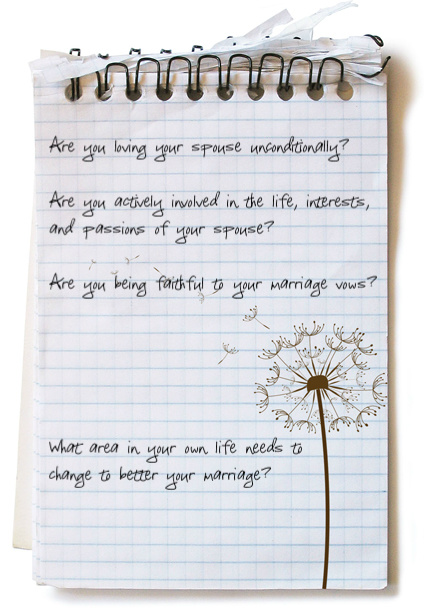 Are you loving your spouse unconditionally?
Are you actively involved in the life, interests,
and passions of your spouse?
Are you being faithful to your marriage vows?
What area in your own life needs to
change to better your marriage?